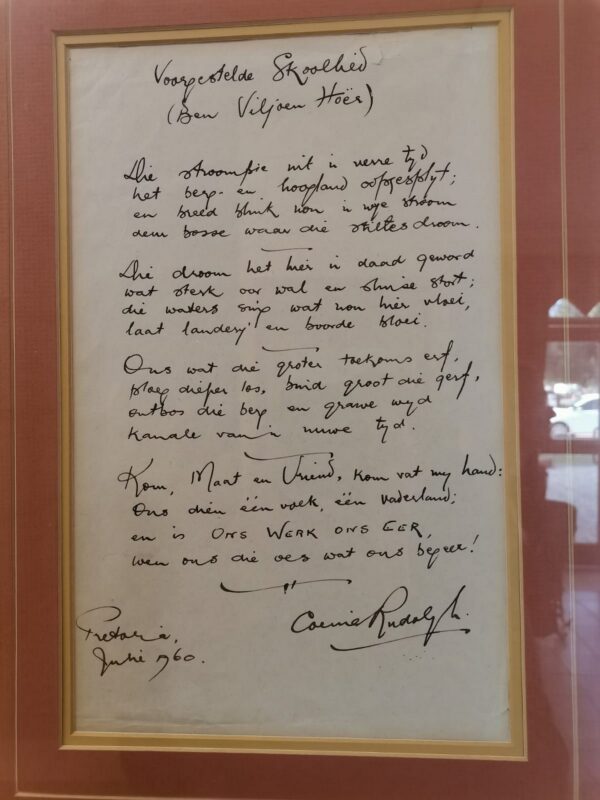 Voorgestelde Skoollied
(Ben Viljoen Hoër)
Die stroompie uit 'n verre tyd
het berg- en hoogland oopgesplyt;
en breed blink nou 'n wye stroom
deur bosse waar die stiltes droom.
Die droom het hier 'n daad geword
wat sterk oor wal en sluise stort;
die waters sing wat nou hier vloei,
laat landery en boorde bloei.
Ons wat die groter toekoms erf,
ploeg dieper los, buid groot die gerf,
ontbos die berg en grawe wyd
kanale van 'n nuwe tyd.
Kom, Maat en Vriend, kom vat my hand:
Ons dien één volk, één vaderland;
en is ONS WERK ONS EER,
wen ons die oes wat ons begeer!
Coenie Rudolph.
Pretoria,
Julie 1960.